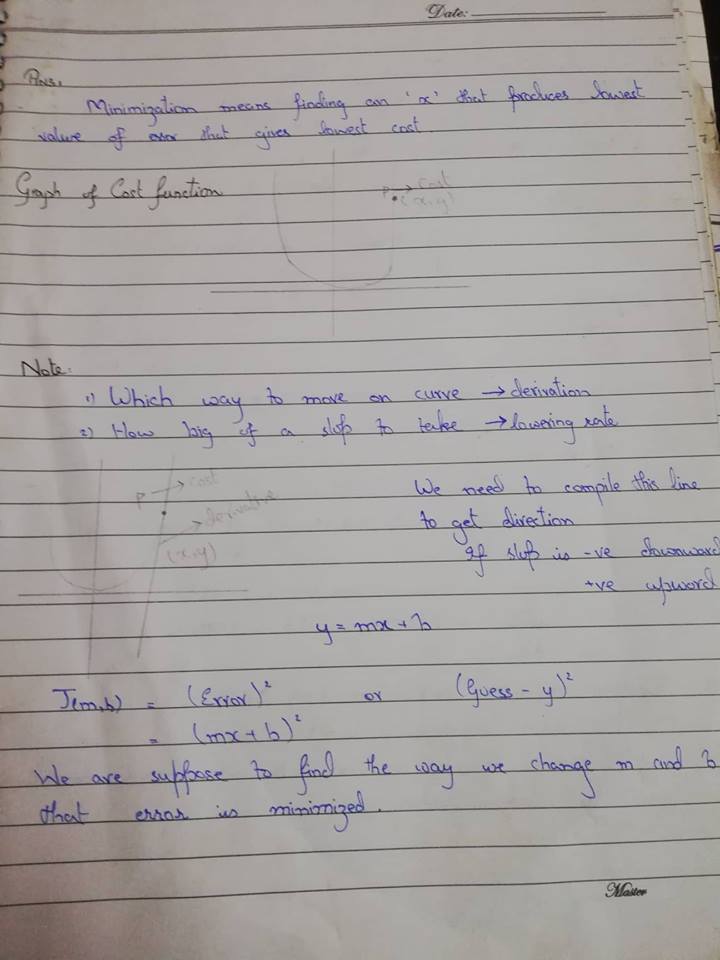 Date:
Ans.
Minimization means finding an 'x' that produces lowest
value of error that gives lowest cost.
Graph of Cost function
P → cost
(x,y)
Note:
1) Which way to move on curve → derivation
2) How big of a slop to take → lowering rate
P → cost
→ derivative
(x,y)
We need to compile this line
to get direction
If slop is -ve downward
+ve upword
y = mx + b
J(m,b) = (Error)² or (Guess - y)²
= (mx + b)²
We are suppose to find the way we change m and b
that error is minimized.
Master